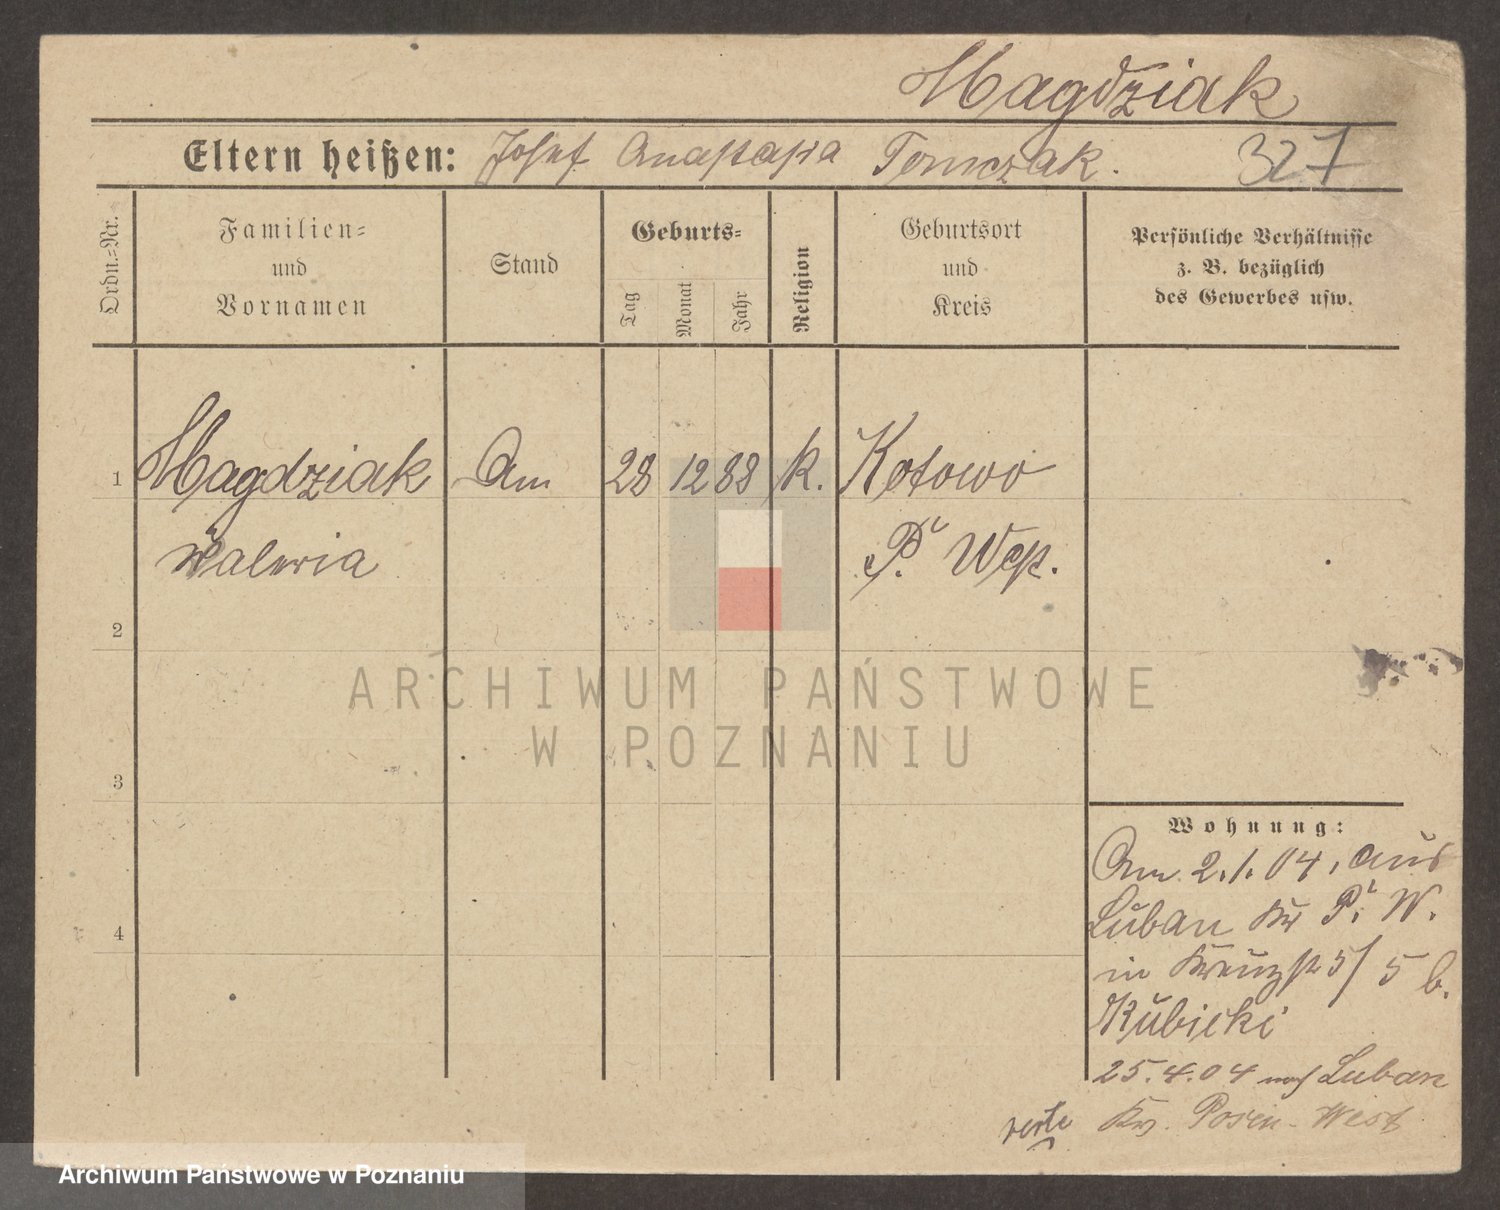 Magdziak
Eltern heißen: Josef Anastasia Tomczak. 327
Ordn.=Nr.
Familien=
und
Vornamen
Stand
Geburts=
Tag
Monat
Jahr
Religion
Geburtsort
und
Kreis
Persönliche Verhältnisse
z. B. bezüglich
des Gewerbes usw.
1 Magdziak Am 28 12 88 k. Kotowo
Waleria P. Wep.
2
3
4
Wohnung:
Am 2.1.04, aus
Luban Kr P. W.
in Kreuzstr 5/ 5 b.
Kubicki
25.4.04 nach Luban
verte Kr. Posen-West
ARCHIWUM PAŃSTWOWE
W POZNANIU
Archiwum Państwowe w Poznaniu